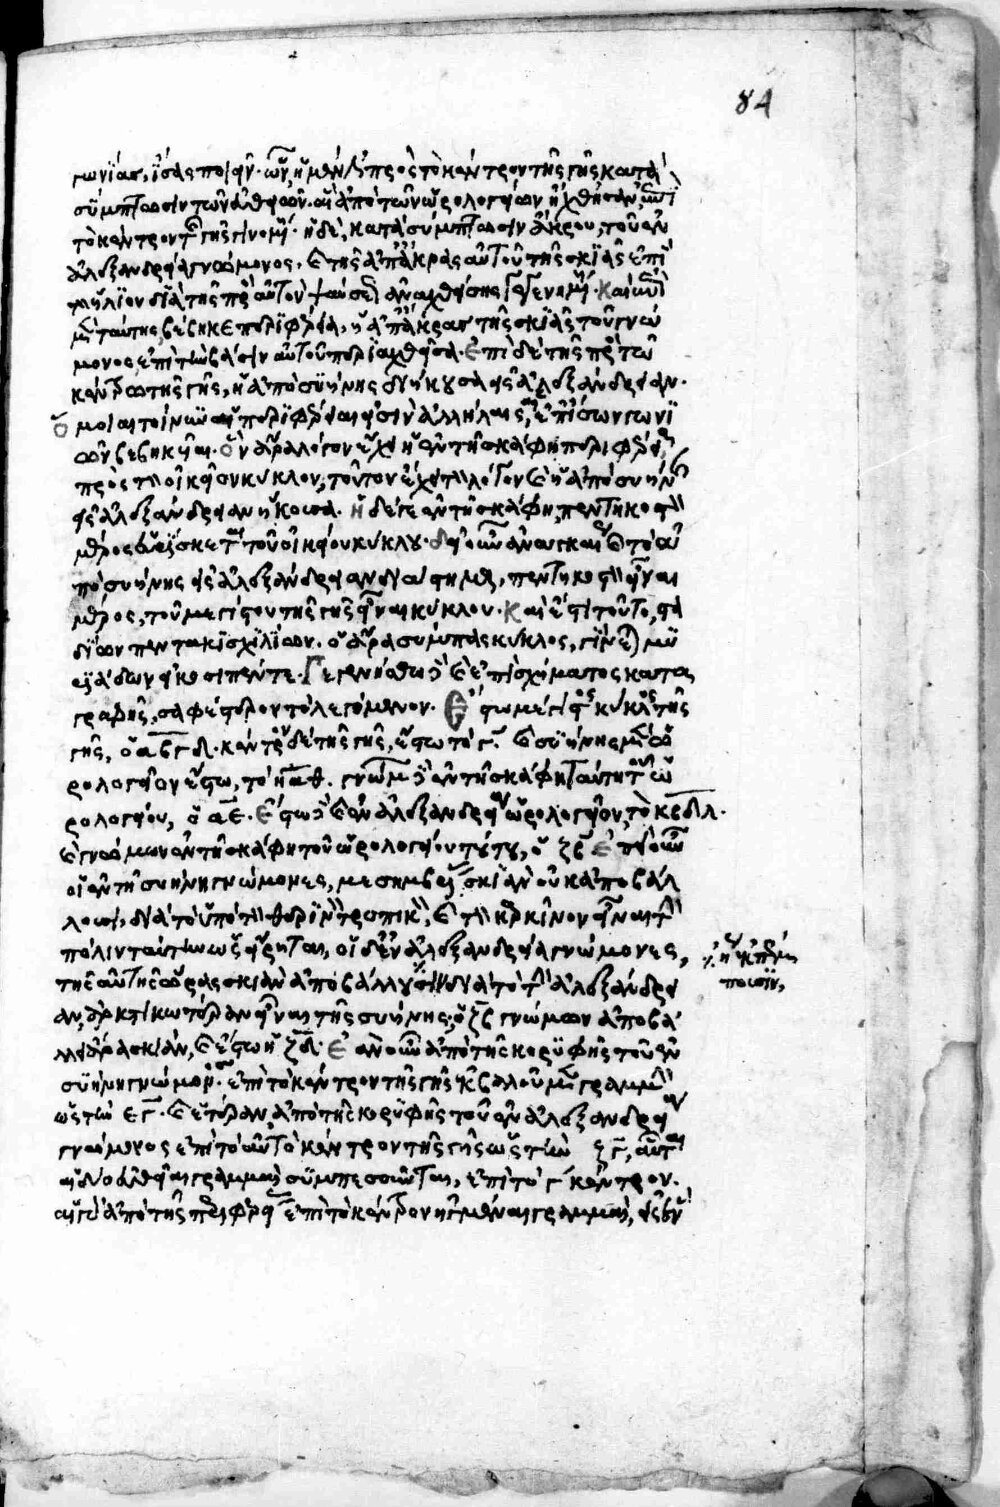 84
γωνίας, ἴσας ποιεῖν. ὧν, ἡ μὲν πρὸς τὸ κέντρον τῆς γῆς κατὰ
σύμπτωσιν τῶν εὐθειῶν. αἳ ἀπὸ τῶν ὡρολογείων ἤχθησαν ἐπὶ
τὸ κέντρον τῆς γῆς γινομένη. ἡ δὲ, κατὰ σύμπτωσιν ἄκρου, τοῦ ἐν
ἀλεξανδρείᾳ γνώμονος. καὶ τῆς ἀπ' ἄκρας αὐτοῦ τῆς σκιᾶς ἐπὶ
ἥλιον διὰ τῆς πρὸς αὐτὸν ψαύσεως ἀναχθείσης γεγενημένη. καὶ ἐπὶ
μὲν ταύτης βέβηκε περιφέρεια, ἡ ἀπ' ἄκρας τῆς σκιᾶς τοῦ γνώ
μονος, ἐπὶ τὴν βάσιν αὐτοῦ περιαχθεῖσα. ἐπὶ δὲ τῆς πρὸς τῷ
κέντρῳ τῆς γῆς, ἡ ἀπὸ συήνης διήκουσα εἰς ἀλεξάνδρειαν.
ὅμοιαι τοίνυν αἱ περιφέρειαι εἰσὶν ἀλλήλαις, ἐπ' ἴσων γωνι
ῶν βεβηκυῖαι. ὃν ἄρα λόγον ἔχει ἡ ἐν τῇ σκάφῃ περιφέρεια
πρὸς τὸν οἰκεῖον κύκλον, τοῦτον ἔχει τὸν λόγον καὶ ἡ ἀπὸ συήνης
εἰς ἀλεξάνδρειαν ἥκουσα. ἡ δέ γε ἐν τῇ σκάφῃ, πεντηκοστὸν
μέρος εὑρίσκεται τοῦ οἰκείου κύκλου. δεῖ οὖν ἀναγκαίως καὶ τὸ ἀ
πὸ συήνης εἰς ἀλεξάνδρειαν διάστημα, πεντηκοστὸν εἶναι
μέρος, τοῦ μεγίστου τῆς γῆς εἶναι κύκλου. καὶ ἔστι τοῦτο, στα
δίων πεντακισχιλίων. ὁ ἄρα σύμπας κύκλος, γίνεται μυ
ριάδων εἴκοσι πέντε. Γεγενήσθω δὲ καὶ ἐπὶ σχήματος κατα
γραφῆς, σαφέστερον τὸ λεγόμενον. Ἔστω μέγιστος κύκλος τῆς
γῆς, ὁ αβγδ. κέντρον δὲ τῆς γῆς, ἔστω τὸ γ. καὶ συήνης μὲν ὡ
ρολογεῖον ἔστω, τὸ ηαθ. γνώμων δὲ ἐν τῇ σκάφῃ ταύτῃ τοῦ ὡ
ρολογείου, ὁ αε. Ἔστω δὲ καὶ ἐν ἀλεξανδρείᾳ ὡρολογεῖον, τὸ κβδλ.
καὶ γνώμων ἐν τῇ σκάφῃ τοῦ ὡρολογείου τούτου, ὁ ζβ. Ἐπεὶ οὖν
οἱ ἐν τῇ συήνῃ γνώμονες, μεσημβρίας σκιὰν οὐκ ἀποβάλ
λουσι, διὰ τὸ ὑπὸ τὸν θερινὸν τροπικὸν, καὶ τὸν καρκίνον εἶναι τὴν
πόλιν ταύτην ὡς εἴρηται, οἱ δὲ ἐν ἀλεξανδρείᾳ γνώμονες,
τῆς αὐτῆς ὥρας σκιὰν ἀποβάλλουσι διὰ τὸ τὴν ἀλεξάνδρει
αν, ἀρκτικωτέραν εἶναι τῆς συήνης, ὁ ζβ γνώμων ἀποβα
λεῖ ἄρα σκιάν, καὶ ἔστω ἡ ζδ. Ἐὰν οὖν ἀπὸ τῆς κορυφῆς τοῦ ἐν
συήνῃ γνώμονος ἐπὶ τὸ κέντρον τῆς γῆς ἐκβαλοῦμεν γραμμὴν
ὡς τὴν εγ. καὶ ἑτέραν ἀπὸ τῆς κορυφῆς τοῦ ἐν ἀλεξανδρείᾳ
γνώμονος ἐπὶ τὸ αὐτὸ κέντρον τῆς γῆς ὡς τὴν ζγ, αὗται
αἱ δύο εὐθεῖαι γραμμαὶ συμπεσοῦνται, ἐπὶ τὸ γ κέντρον.
αἱ γὰρ ἀπὸ τῆς περιφερείας ἐπὶ τὸ κέντρον ἠγμέναι γραμμαὶ, εἰς ἓν